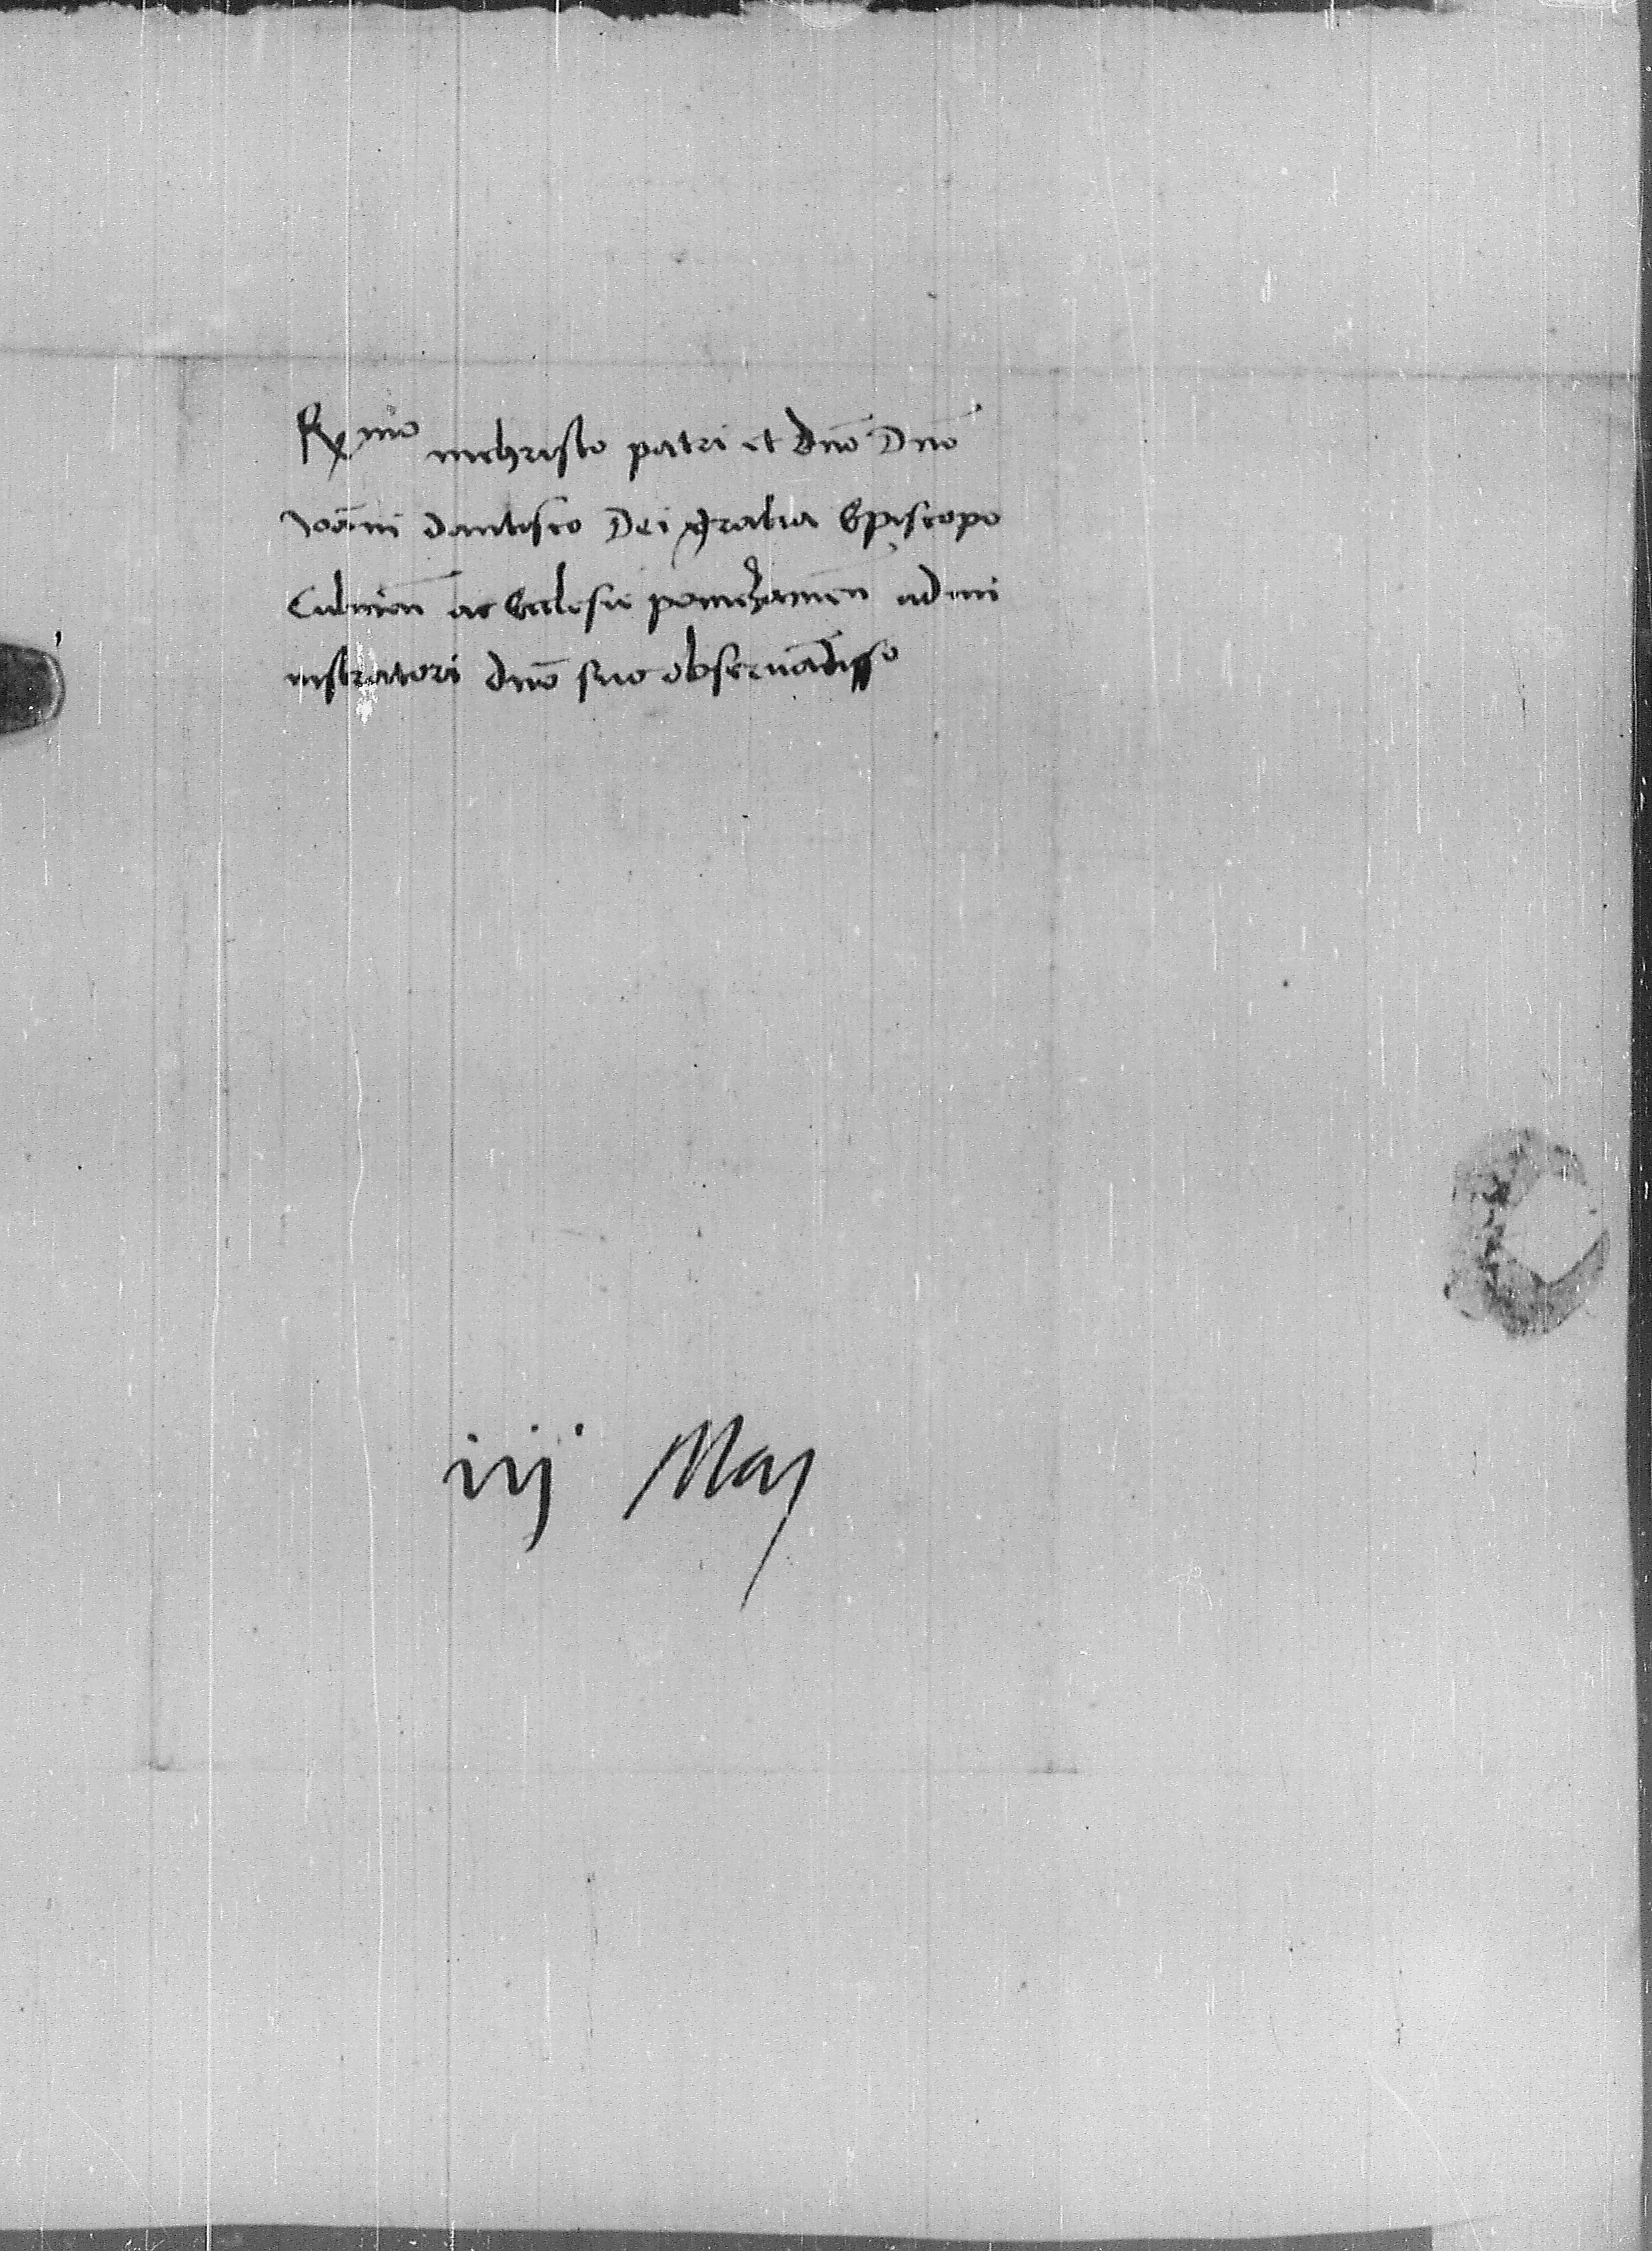 Rx^mo inchristo patri et dno Dno
Ioāni dantisco Dei gratia Episcopo
Culmēn ac Ecclesie pomezaniēn admi
nistratori dno suo obseruādisso
iij May